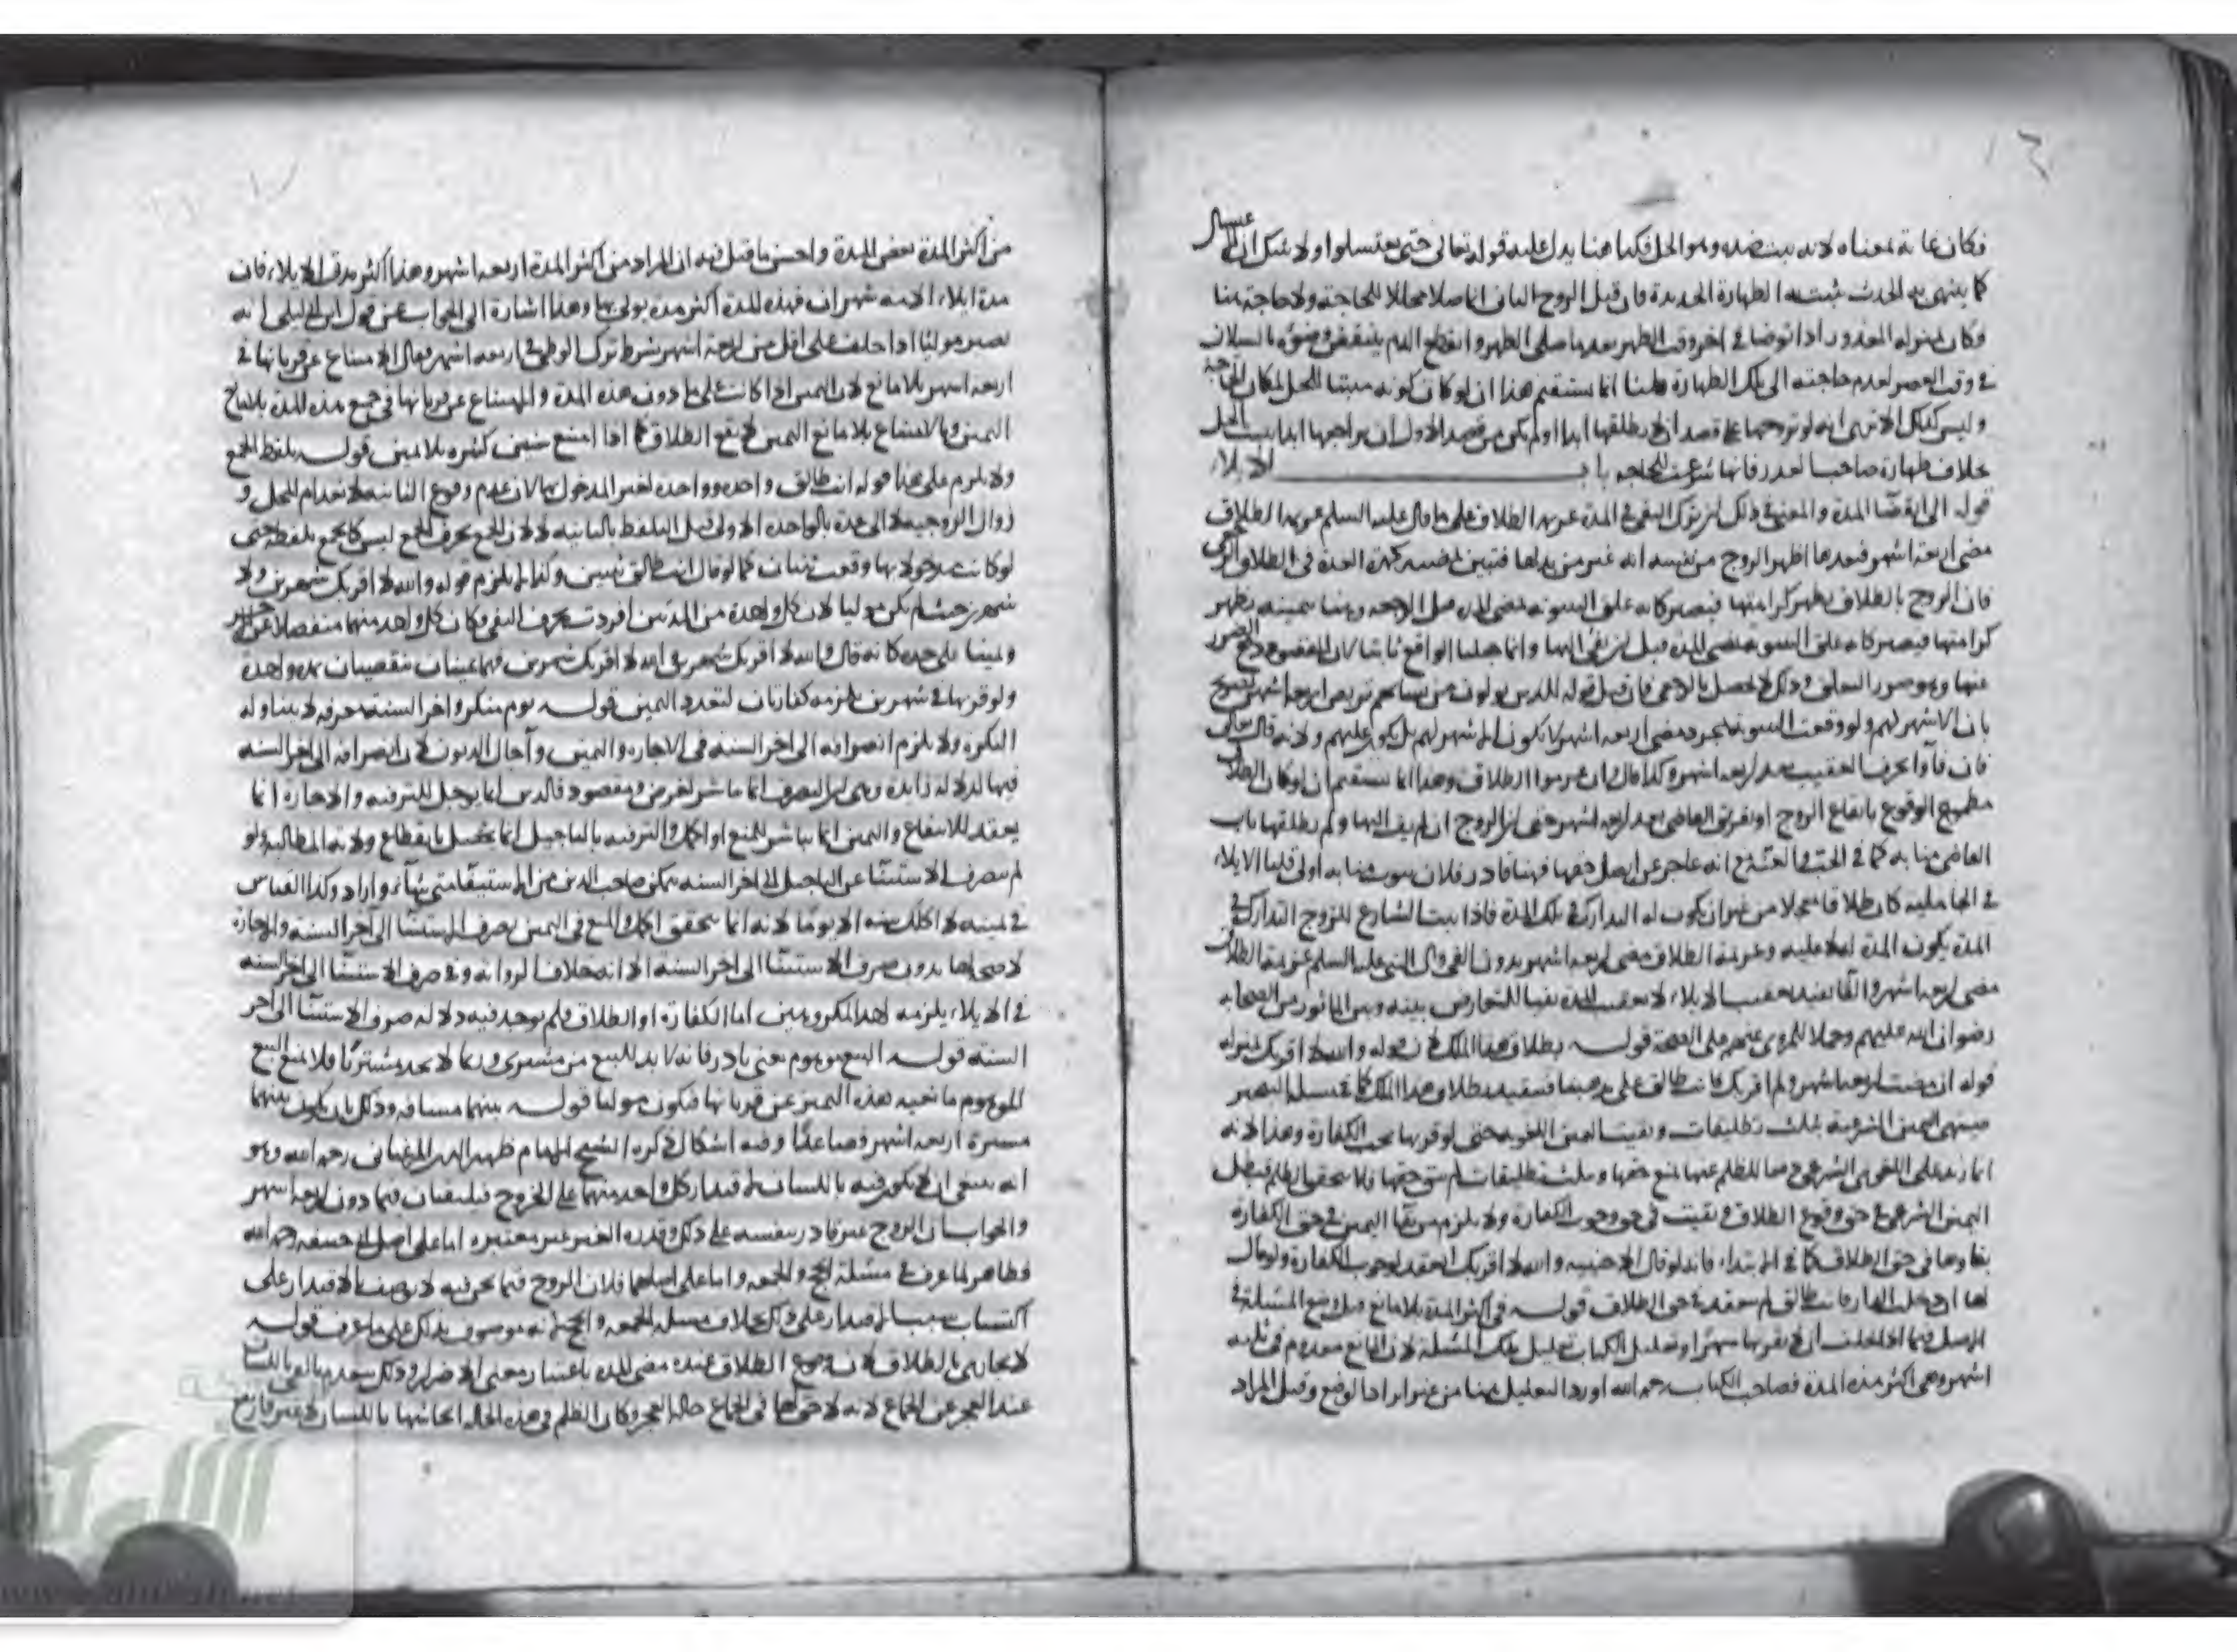 فكان غاية لمعناه لانه يثبت ضده وهو الحل فكذا هنا يدل عليه قوله تعالى حتى تغتسلوا ولا شك ان الاغتسال
كما ينتهي به الحدث يثبت به الطهارة الجديدة فان قيل الزوج الثاني انما صلا محللا للحاجة ولا حاجة هنا
وكان بمنزلة المعذور اذا توضا في اخر وقت الظهر بعد ما صلى الظهر وانقطع الدم ينتقض وضوءه بالسيلان
في وقت العصر لعدم حاجته الى تلك الطهارة قلنا انما يستقيم هذا ان لو كان كونه مثبتا للحل لمكان الحاجة
وليس كذلك الا ترى انه لو تزوجها على قصد ان لا يطلقها ابدا او لم يكن من قصد الاول ان يراجعها ابدا يثبت الحل
بخلاف طهارة صاحب العذر فانها شرعت للحاجة باب الايلاء
قوله الى انقضاء المدة والمعنى في ذلك ان ترك الفيء في المدة عزيمة الطلاق على ما قال عليه السلم عزيمة الطلاق
مضى اربعة اشهر فبعدها اظهر الزوج من نفسه انه غير مريد لها فتبين بمضيه كمدة العدة في الطلاق الرجعي
فان الزوج بالطلاق يظهر كراهتها فيصير كانه علق البينونة بمضي المدة قبل الرجعة وهنا بيمينه يظهر
كراهتها فيصير كانه علق البينونة بمضي المدة قبل ان يفيء اليها وانما جعلنا الواقع ثابتا لان المقصود دفع الضرر
عنها وهو صورة التعليق وذلك لا يحصل بالرجعي فان قيل قوله للذين يولون من نسائهم تربص اربعة اشهر تصريح
بان الاشهر لهم ولو وقعت البينونة بمجرد مضي اربعة اشهر لا تكون الاشهر لهم بل يكون عليهم ولانه قال تعالى
فان فاؤا بحرف التعقيب بعد اربعة اشهر وكذا قال وان عزموا الطلاق وهذا انما يستقيم ان لو كان الطلاق
الوقوع بايقاع الزوج او تفريق القاضي بعد اربعة اشهر حتى ان الزوج ان لم يفء اليها ولم يطلقها ناب
القاضي منابه كما في الجب والعنة انه عاجز عن ايصال حقها فهنا قادر فلان ينوب منابه اولى قلنا الايلاء
في الجاهلية كان طلاقا معجلا من غير ان يكون له التدارك في تلك المدة فاذا اثبت الشارع للزوج التدارك في
المدة يكون المدة له لا عليه وعزيمة الطلاق مضي اربعة اشهر بدون الفيء قال النبي عليه السلم عزيمة الطلاق
مضي اربعة اشهر والفاء تفيد تعقيب الايلاء لا تعقيب المدة نفيا للتعارض بينه وبين الماثور من الصحابة
رضوان الله عليهم وحملا للمروي عنهم على الصحة قوله بطلاق هذا الملك لان قوله والله لا اقربك بمنزلة
قوله ان مضت اربعة اشهر ولم اقربك فانت طالق على مذهبنا فيتقيد بطلاق هذا الملك كما في
فينتهي اليمين الشرعية بثلث تطليقات وبقيت اليمين اللغوية حتى لو قربها يجب الكفارة وهذا لانه
انما زيد على اللغوي الشرعي دفعا للظلم عنها لمنع حقها وبثلث تطليقات لم يبق حقها فلا يتحقق الظلم فبطل
اليمين الشرعي في حق وقوع الطلاق وبقيت في حق وجوب الكفارة ولا يلزم من بقاء اليمين في حق الكفارة
بقاؤها في حق الطلاق كما في الابتداء فانه لو قال لاجنبية والله لا اقربك انعقد لوجوب الكفارة ولو قال
لها ان دخلت الدار فانت طالق لم ينعقد في حق الطلاق قوله في اكثر المدة بلا مانع قيل وضع المسئلة في
الاصل فيما اذا حلف ان لا يقربها شهرا وتعليل الكتاب تعليل تلك المسئلة لان المانع معدوم في ثلثة
اشهر وهي اكثر هذه المدة فصاحب الكتاب رحمه الله اورد التعليل هنا من غير ايراد الوضع وقيل المراد
من اكثر المدة بعض المدة واحسن ما قيل فيه ان المراد من اكثر المدة اربعة اشهر وهذا اكثر مدة الايلاء فان
مدة ايلاء الامة شهران فهذه المدة اكثر مدة يولي بها وهذا اشارة الى الجواب عن قول ابن ابي ليلى انه
يصير موليا اذا حلف على اقل من اربعة اشهر بشرط ترك الوطئ في اربعة اشهر فقال الامتناع عن قربانها في
اربعة اشهر بلا مانع لان اليمين اذا كانت على ما دون هذه المدة والامتناع عن قربانها في جميع هذه المدة بلا مانع
اليمين وبالامتناع بلا مانع اليمين لا يقع الطلاق كما اذا امتنع سنين كثيرة بلا يمين قوله بلفظ الجمع
ولا يلزم على هذا قوله انت طالق واحدة وواحدة لغير المدخول بها لان عدم وقوع الثانية لانعدام المحل و
زوال الزوجية لا الى عدة بالواحدة الاولى قبل التلفظ بالثانية لا لان الجمع بحرف الجمع ليس كالجمع بلفظه حتى
لو كانت مدخولا بها وقعت ثنتان كما لو قال انت طالق ثنتين وكذا لا يلزم قوله والله لا اقربك شهرين ولا
شهرين حيث لم يكن موليا لان كل واحدة من المدتين افردت بحرف النفي وكان كل واحد منهما منفصلا عن الاخر
ويمينا على حدة كانه قال والله لا اقربك شهرين والله لا اقربك شهرين فهما يمينان تنقضيان بمدة واحدة
ولو قربها في شهرين يلزمه كفارتان لتعدد اليمين قوله يوم منكر واخر السنة معرفة لا يتناوله
النكرة ولا يلزم انصرافه الى اخر السنة في الاجارة واليمين وآجال الديون لان انصرافه الى اخر السنة
فيها لدلالة زايدة وهي ان التصرف انما باشر لغرض ومقصود فالدين انما يؤجل للترفيه والاجارة انما
يعقد للانتفاع واليمين انما يباشر للمنع او الحمل والترفيه بالتاجيل انما يحصل بانقطاع ولاية المطالبة ولو
لم يصرف الاستثناء عن التاجيل الى اخر السنة يتمكن صاحب الدين من الاستيفاء متى شاء واراد وكذا القياس
في يمينه لا اكلمك سنة الا يوما لانه انما يتحقق الحمل والمنع في اليمين بصرف الاستثناء الى آخر السنة والاجارة
لا صحة لها بدون صرف الاستثناء الى اخر السنة الا انه بخلاف وفي صرف الاستثناء الى اخر السنة
في الايلاء يلزمه احد المكروهين اما الكفارة او الطلاق فلم يوجد فيه دلالة صرف الاستثناء الى اخر
السنة قوله البيع موهوم يعني نادر فانه لا بد للبيع من مشتري وربما لا يجد مشتريا فلا يمنع البيع
الموهوم مانعية هذه اليمين عن قربانها فيكون موليا قوله بينهما مسافة وذلك بان يكون بينهما
مسيرة اربعة اشهر فصاعدا وفيه اشكال ذكره الشيخ الامام ظهير الدين المرغيناني رحمه الله وهو
انه ينبغي ان لا يكون فيه باللسان لاقتدار كل واحد منهما على الخروج فيلتقيان فيما دون اربعة اشهر
والجواب ان الزوج غير قادر بنفسه على ذلك وقدرة الغير غير معتبرة اما على اصل ابي حنيفة رحمه الله
فظاهر لما عرف في مسئلة الحج والجمعة واما على اصلهما فلان الزوج فيما نحن فيه لا يوصف بالاقتدار على
اكتساب سبب الاقتدار على ذلك بخلاف مسئلة الجمعة والحج لانه موصوف بذلك على ما عرف قوله
لا يجازى بالطلاق لان وقوع الطلاق عند مضي المدة باعتبار معنى الاضرار وذلك ينعدم بالفيء باللسان
عند العجز عن الجماع لانه لا حق لها في الجماع حالة العجز وكان الظلم في هذه الحالة ايحاشها باللسان